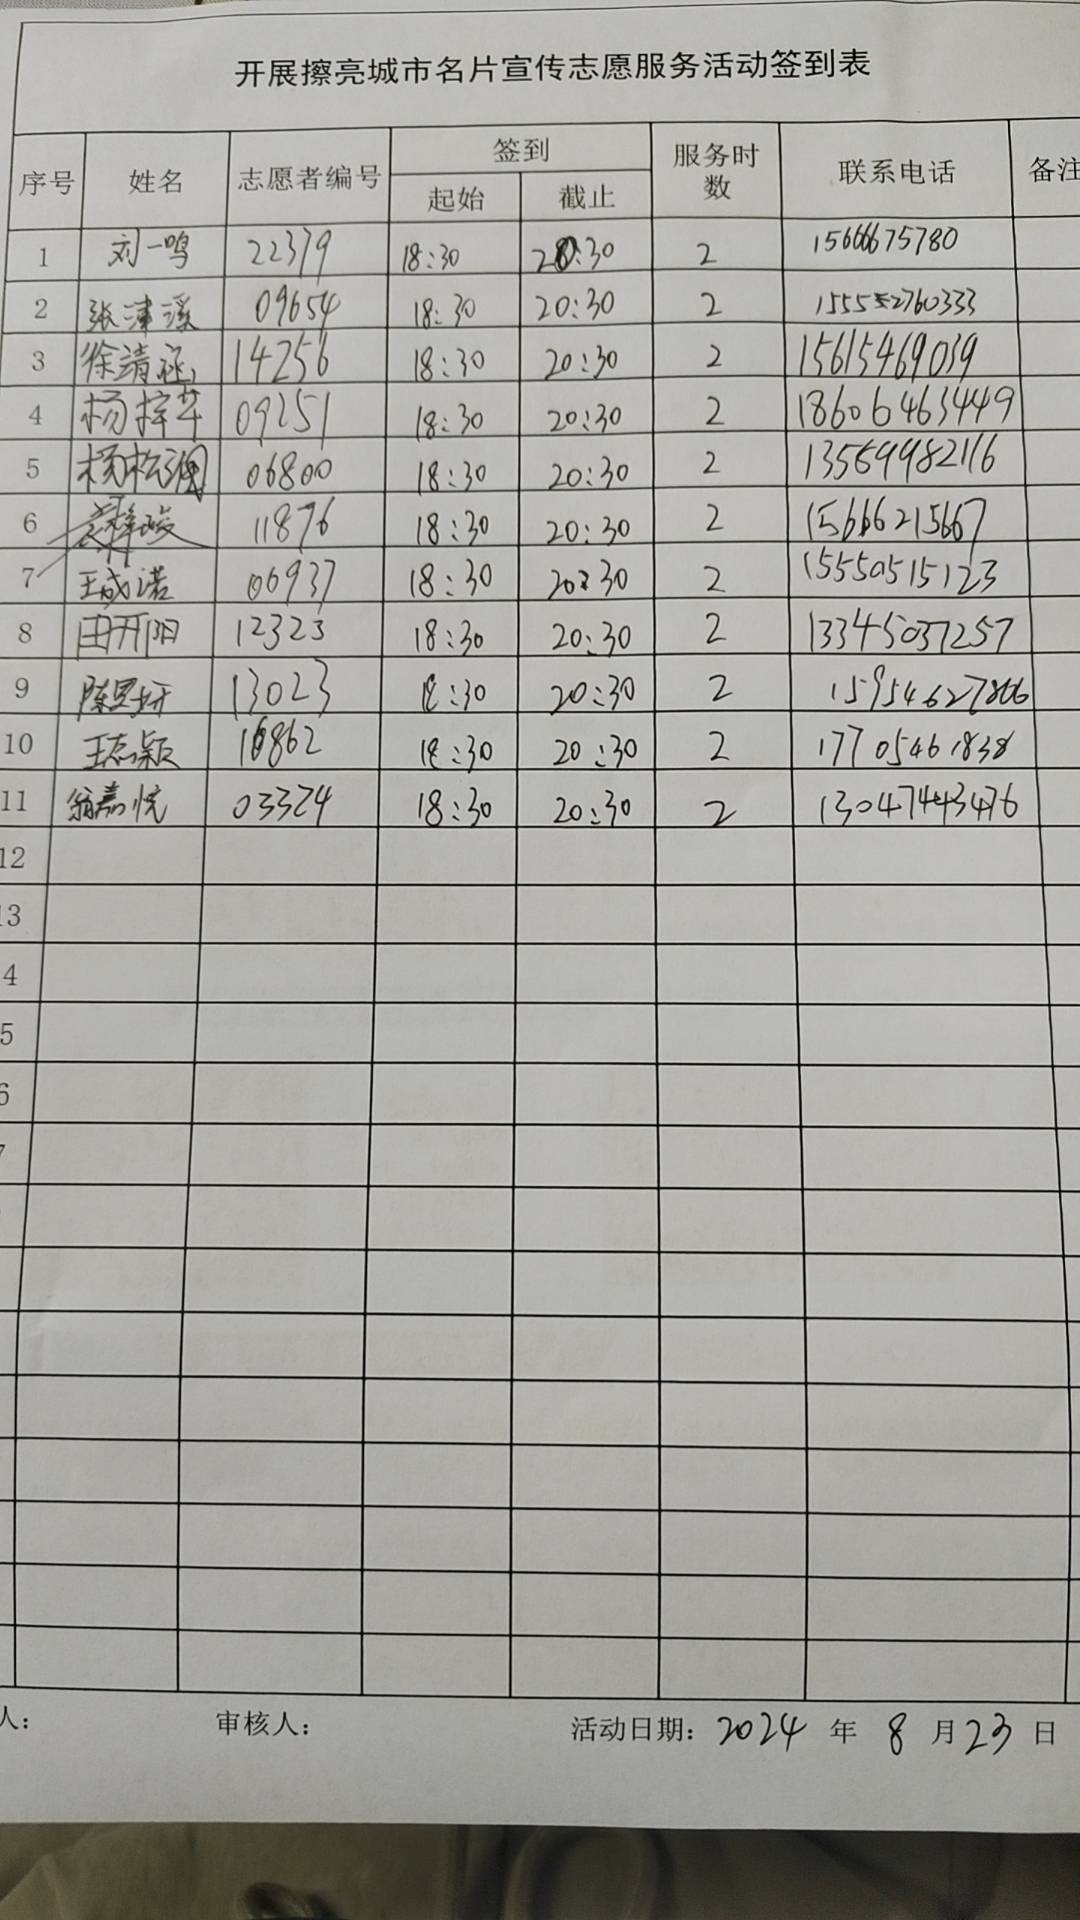 开展擦亮城市名片宣传志愿服务活动签到表
序号 姓名 志愿者编号 签到 服务时数 联系电话 备注
起始 截止
1 刘一鸣 22379 18:30 20:30 2 15666675780
2 张津溪 09654 18:30 20:30 2
3 徐靖涵 14256 18:30 20:30 2 15615469039
4 杨梓苹 09251 18:30 20:30 2 18606463449
5 杨松润 06800 18:30 20:30 2 13569982116
6 11876 18:30 20:30 2 15666215667
7 王成诺 06937 18:30 20:30 2 15550515123
8 田开阳 12323 18:30 20:30 2 13345037257
9 陈思妍 13023 18:30 20:30 2 15954627866
10 王志颖 16862 18:30 20:30 2 17705461838
11 翁嘉悦 03324 18:30 20:30 2 13047443476
12
13
4
5
6
7
人: 审核人: 活动日期: 2024 年 8 月 23 日